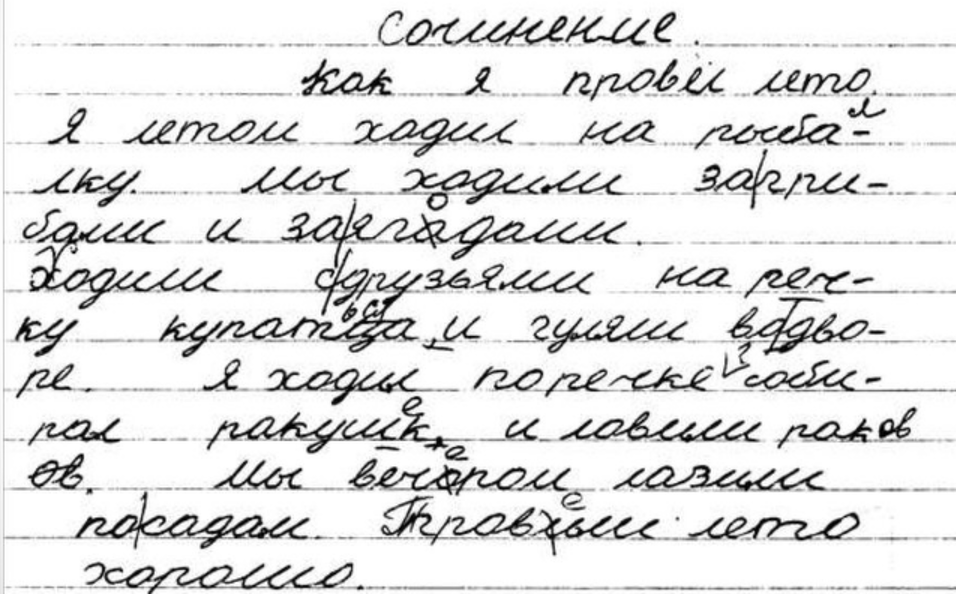 Сочинение.
Как я провёл лето.
Я летом ходил на рыба-
лку. Мы ходили загри-
бами и заягадами.
Ходили сдрузьями на реч-
ку купатца, и гуляли водво-
ре. Я ходил поречке соби-
рал ракушк, и ловили раков
ов. Мы вечором лазили
посадам. Правили лето
хорошо.